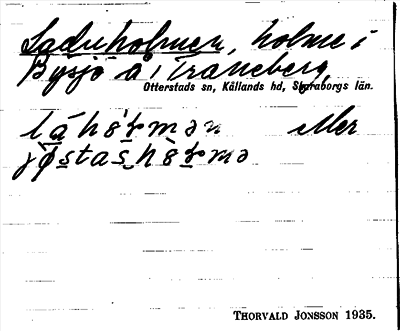 Laduholmen, holme i
Bysjö å i Traneberg,
Otterstads sn, Kållands hd, Skaraborgs län.
eller
THORVALD JONSSON 1935.